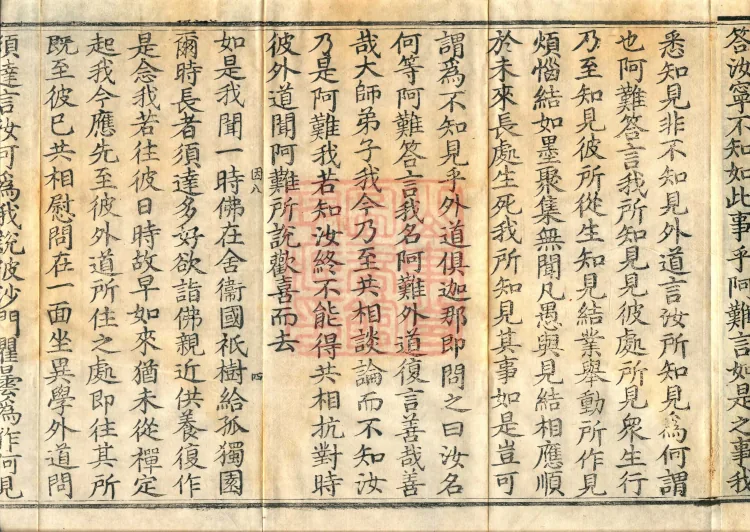 答汝寧不知如此事乎阿難言如是之事我
悉知見非不知見外道言汝所知見為何謂
也阿難答言我所知見見彼處所見眾生行
乃至知見彼所從生知見結業舉動所作見
煩惱結如墨聚集無聞凡愚與見結相應順
於未來長處生死我所知見其事如是豈可
謂為不知見乎外道俱迦那即問之曰汝名
何等阿難答言我名阿難外道復言善哉善
哉大師弟子我今乃至共相談論而不知汝
乃是阿難我若知汝終不能得共相抗對時
彼外道聞阿難所說歡喜而去
因八
四
如是我聞一時佛在舍衞國祇樹給孤獨園
爾時長者須達多好欲詣佛親近供養復作
是念我若往彼日時故早如來猶未從禪定
起我今應先至彼外道所住之處即往其所
既至彼已共相慰問在一面坐異學外道問
須達言汝可為我說彼沙門瞿曇為作何見